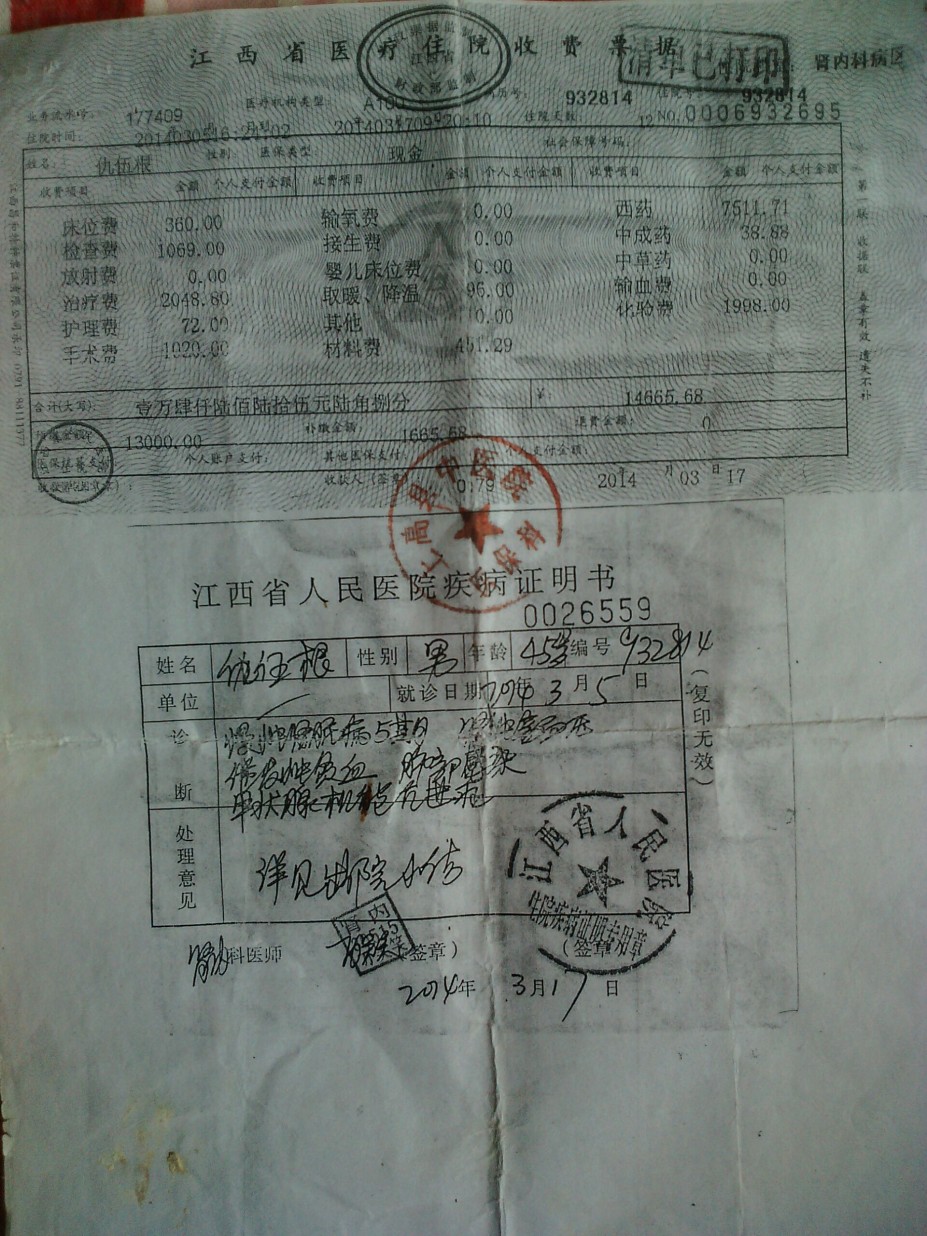 江西省医疗住院收费票据
清单已打印
肾内科病区
业务流水号: 177409 医疗机构类型: 932814 住院号: 932814
住院时间: 住院天数 12 NO.0006932695
姓名: 仇伍根 性别: 医保类型 现金 社会保障号码:
收费项目 金额 个人支付金额 收费项目 金额 个人支付金额 收费项目 金额 个人支付金额
床位费 360.00 输氧费 0.00 西药 7511.71
检查费 1069.00 接生费 0.00 中成药 38.88
放射费 0.00 婴儿床位费 0.00 中草药 0.00
治疗费 2048.80 取暖、降温 96.00 输血费 0.00
护理费 72.00 其他 0.00 化验费 1998.00
手术费 1020.00 材料费 451.29
合计(大写): 壹万肆仟陆佰陆拾伍元陆角捌分 ¥: 14665.68
预缴金额: 13000.00 补缴金额: 1665.68 退费金额: 0
个人账户支付: 其他医保支付: 个人支付金额:
收款人(签章) 0:79 2014 年 03 月 17 日
第一联 收据联 盖章有效 遗失不补
上高县中医院
江西省人民医院疾病证明书
0026559
姓名 仇伍根 性别 男 年龄 45岁 编号 932814
单位 — 就诊日期 2014年 3月 5日
(复印无效)
诊断 慢性肾脏病5期
继发性贫血 肺部感染
甲状腺机能亢进症
处理意见 详见出院小结
江西省人民医院
住院疾病证明专用章
肾内科医师 (签章) (签章)
2014年 3月17日